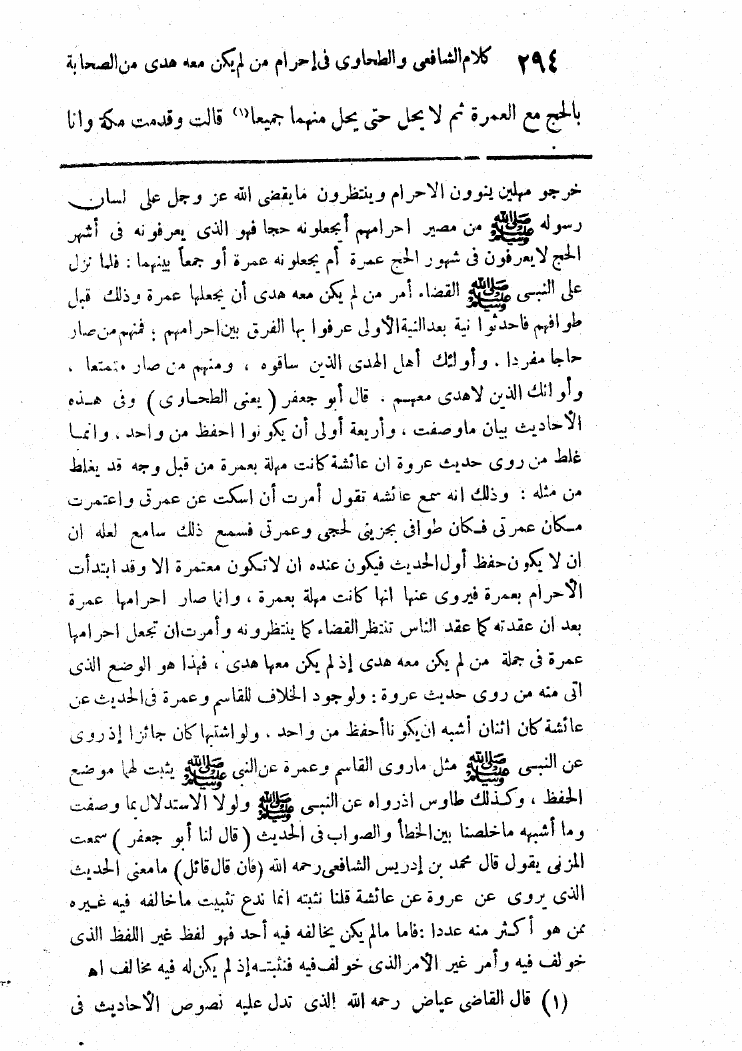 ٢٩٤ كلام الشافعى والطحاوى فى إحرام من لم يكن معه هدى من الصحابة
بالحج مع العمرة ثم لا يحل حتى يحل منهما جميعا (١) قالت وقدمت مكة وانا
خرجو مهلين ينوون الاحرام وينتظرون مايقضى الله عز وجل على لسان
رسوله ﷺ من مصير احرامهم أيجعلونه حجا فهو الذى يعرفونه فى أشهر
الحج لايعرفون فى شهور الحج عمرة أم يجعلونه عمرة أو جمعاً بينهما : فلما نزل
على النبى ﷺ القضاء أمر من لم يكن معه هدى أن يجعلها عمرة وذلك قبل
طوافهم فاحدثوا نية بعد النية الأولى عرفوا بها الفرق بين احرامهم : فمنهم من صار
حاجا مفردا . وأولئك أهل الهدى الذين ساقوه ، ومنهم من صار متمتعا ،
وأولئك الذين لاهدى معهم . قال أبو جعفر ( يعنى الطحاوى ) وفى هذه
الأحاديث بيان ماوصفت ، وأربعة أولى أن يكونوا احفظ من واحد ، وانما
غلط من روى حديث عروة ان عائشة كانت مهلة بعمرة من قبل وجه قد يغلط
من مثله : وذلك انه سمع عائشه تقول أمرت أن اسكت عن عمرتى واعتمرت
مكان عمرتى فكان طوافى يجزينى لحجى وعمرتى فسمع ذلك سامع لعله ان
ان لا يكون حفظ أول الحديث فيكون عنده ان لاتكون معتمرة الا وقد ابتدأت
الاحرام بعمرة فيروى عنها انها كانت مهلة بعمرة ، وانما صار احرامها عمرة
بعد ان عقدته كما عقد الناس تنتظر القضاء كما ينتظرونه وأمرت ان تجعل احرامها
عمرة فى جملة من لم يكن معه هدى إذ لم يكن معها هدى ، فهذا هو الوضع الذى
اتى منه من روى حديث عروة : ولوجود الخلاف للقاسم وعمرة فى الحديث عن
عائشة كان اثنان أشبه ان يكونا أحفظ من واحد ، ولو اشتبها كان جائزا إذ روى
عن النبى ﷺ مثل ماروى القاسم وعمرة عن النبى ﷺ يثبت لهما موضع
الحفظ ، وكذلك طاوس اذرواه عن النبى ﷺ ولولا الاستدلال بما وصفت
وما أشبهه ماخلصنا بين الخطأ والصواب فى الحديث ( قال لنا أبو جعفر ) سمعت
المزنى يقول قال محمد بن إدريس الشافعى رحمه الله (فان قال قائل) مامعنى الحديث
الذى يروى عن عروة عن عائشة قلنا نثبته انما ندع تثبيت ماخالفه فيه غيره
ممن هو أكثر منه عددا : فاما مالم يكن يخالفه فيه أحد فهو لفظ غير اللفظ الذى
خولف فيه وأمر غير الأمر الذى خولف فيه فنثبته إذ لم يكن له فيه مخالف اه
(١) قال القاضى عياض رحمه الله الذى تدل عليه نصوص الأحاديث فى